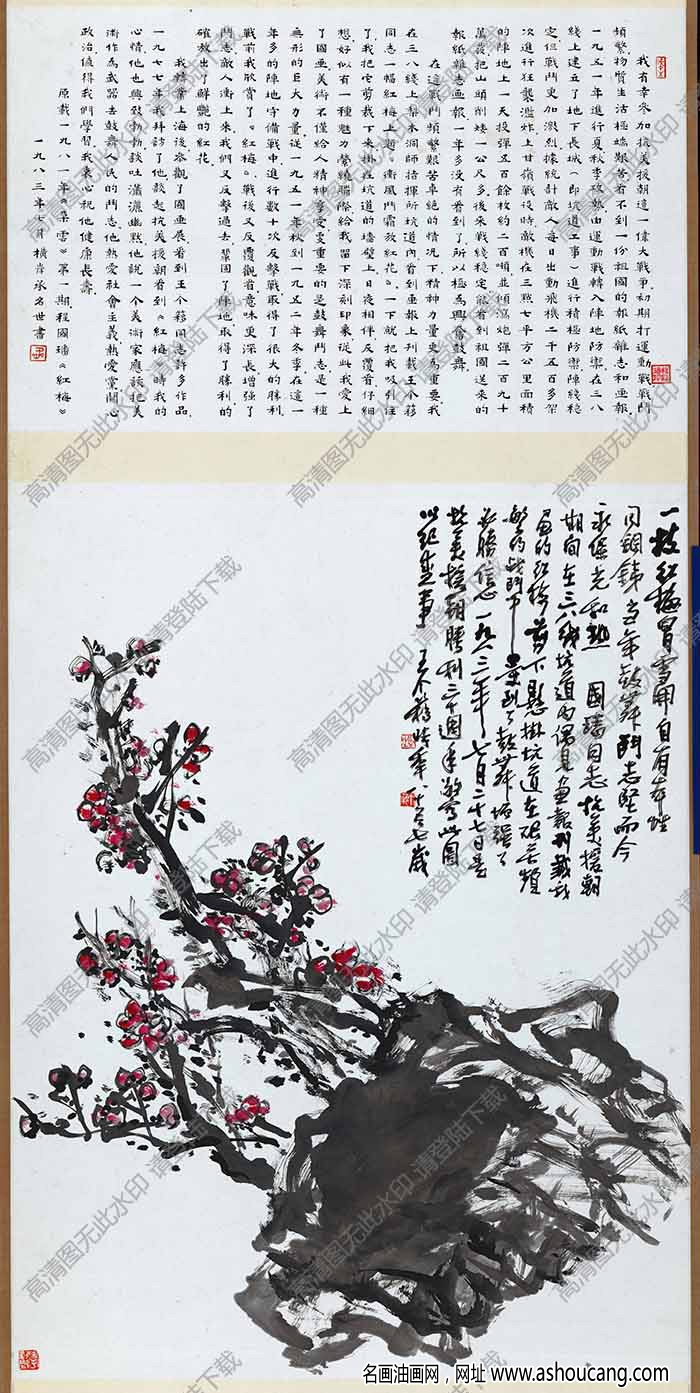 我有幸参加抗美援朝這一偉大戰爭初期打運動戰戰鬥
頻繁物質生活極端艱苦看不到一份祖國的報紙雜志和画報
一九五一年進行夏秋季攻勢由運動戰轉入陣地防禦在三八
綫上建立了地下長城(即坑道工事)進行積極防禦陣綫穩
定但戰鬥更加激烈據統計敵人每日出動飛機二千五百多架
次進行狂轟濫炸上甘嶺戰役時敵機在三點七平方公里面積
的陣地上一天投彈五百餘枚約二百噸並傾瀉炮彈二百九十
萬發把山頭削矮一公尺多後來戰綫穩定能看到祖國送來的
報紙雜志画報一年多没有看到了所以極為興奮鼓舞
在這戰鬥頻繁艱苦卓絶的情况下精神力量更為重要我
在三八綫上梨木洞師指揮所坑道內看到画報上刊載王个簃
同志一幅紅梅上題《衝風鬥霜放紅花》一下就把我吸引住
了我把它剪裁下來掛在坑道的墻壁上日夜相伴反覆看仔細
想好似有一種魅力縈繞腦際給我留下深刻印象從此我愛上
了國画美術不僅給人精神享受更重要的是鼓舞鬥志是一種
無形的巨大力量從一九五一年秋到一九五二年冬季在這一
年多的陣地守備戰中進行數十次反擊戰取得了很大的勝利
戰前我欣賞了《紅梅》戰後又反覆觀看意味更深長增强了
鬥志敵人衝上來我們又反擊過去鞏固了陣地取得了勝利的
確放出了鮮艷的紅花
我轉業上海後參觀了國画展看到王个簃同志許多作品
一九七七年我拜訪了他談起抗美援朝看到《紅梅》時我的
心情他也興致勃勃談吐瀟灑幽默他說一个美術家應該把美
術作為武器去鼓舞人民的鬥志他熱愛社會主義熱愛黨關心
政治值得我們學習我衷心祝他健康長壽
原載一九八一年《朵雲》第一期程國璠《紅梅》
一九八三年七月 橫音承名世書
一枝紅梅冒雪開自有奇姓
同鋼鐵當年鼓舞鬥志堅而今
永保光和熱 國璠同志抗美援朝
期間在三八綫坑道內偶見画報刊載我
画的紅梅剪下懸掛坑道在艰苦頻
繁的战鬥中受到了鼓舞增强了
必勝信心一九八三年七月二十七日是
抗美援朝勝利三十週年敬寫此圖
以紀盛事 王个簃時年八十七歲
高清图无此水印 请登陆下载
名画油画网,网址 www.ashoucang.com